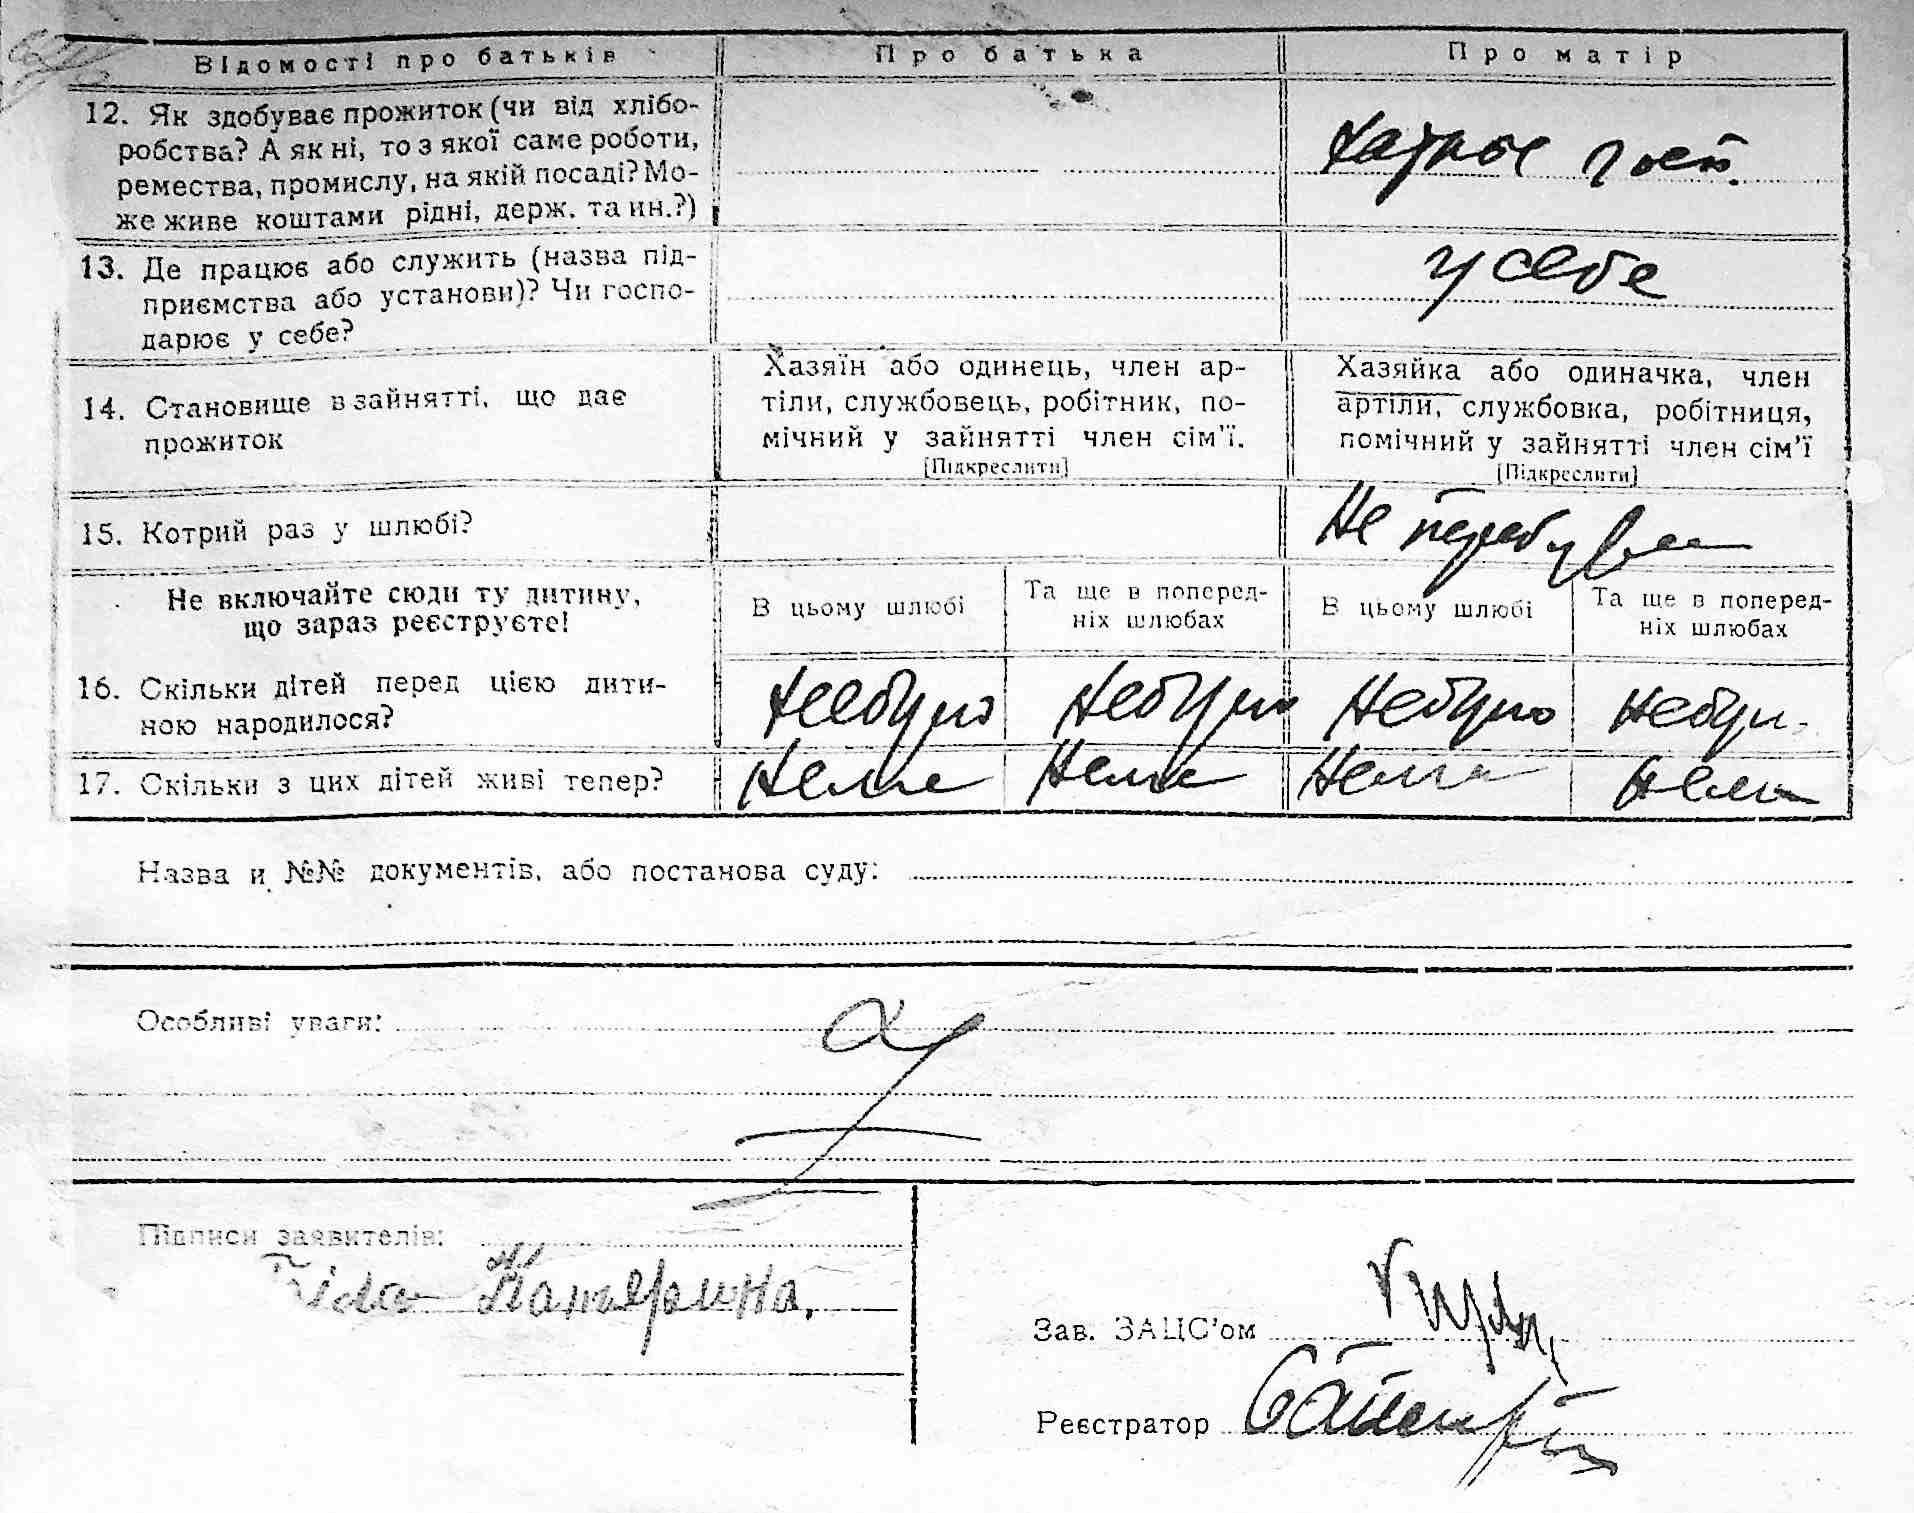 Відомості про батьків Про батька Про матір
12. Як здобуває прожиток (чи від хлібо-
робства? А як ні, то з якої саме роботи,
ремества, промислу, на якій посаді? Мо-
же живе коштами рідні, держ. та ин.?)
хатнє госп.
13. Де працює або служить (назва під-
приємства або установи)? Чи госпо-
дарює у себе?
у себе
14. Становище в зайнятті, що дає
прожиток
Хазяїн або одинець, член ар-
тіли, службовець, робітник, по-
мічний у зайнятті член сім'ї.
[Підкреслити]
Хазяйка або одиначка, член
артіли, службовка, робітниця,
помічний у зайнятті член сім'ї
[Підкреслити]
15. Котрий раз у шлюбі?
Не перебувала
Не включайте сюди ту дитину,
що зараз реєструєте!
В цьому шлюбі
Та ще в поперед-
ніх шлюбах
В цьому шлюбі
Та ще в поперед-
ніх шлюбах
16. Скільки дітей перед цією дити-
ною народилося?
Небуло Небуло Небуло Небул.
17. Скільки з цих дітей живі тепер?
Нема Нема Нема Нема
Назва и №№ документів, або постанова суду:
Особливі уваги:
Підписи заявителів:
Катерина,
Зав. ЗАЦС'ом
Реєстратор